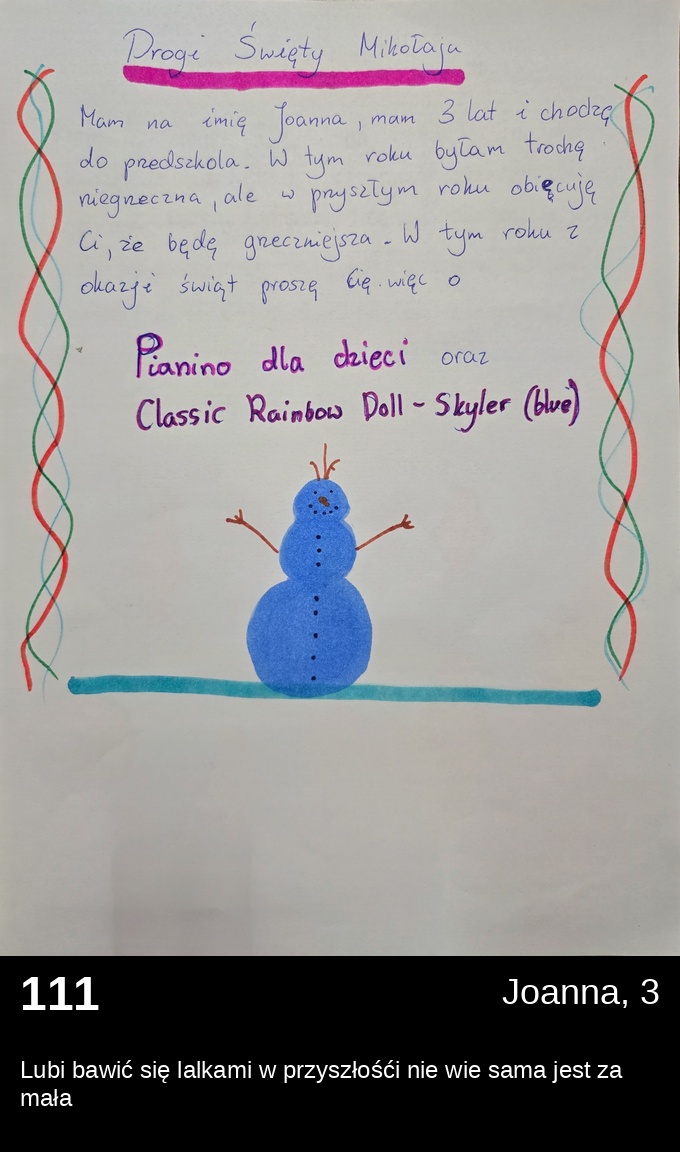 Drogi Święty Mikołaju
Mam na imię Joanna, mam 3 lat i chodzę
do przedszkola. W tym roku byłam trochę
niegrzeczna, ale w przyszłym roku obięcuję
Ci, że będę grzeczniejsza. W tym roku z
okazji świąt proszę Cię więc o
Pianino dla dzieci oraz
Classic Rainbow Doll - Skyler (blue)
111
Joanna, 3
Lubi bawić się lalkami w przyszłośći nie wie sama jest za
mała